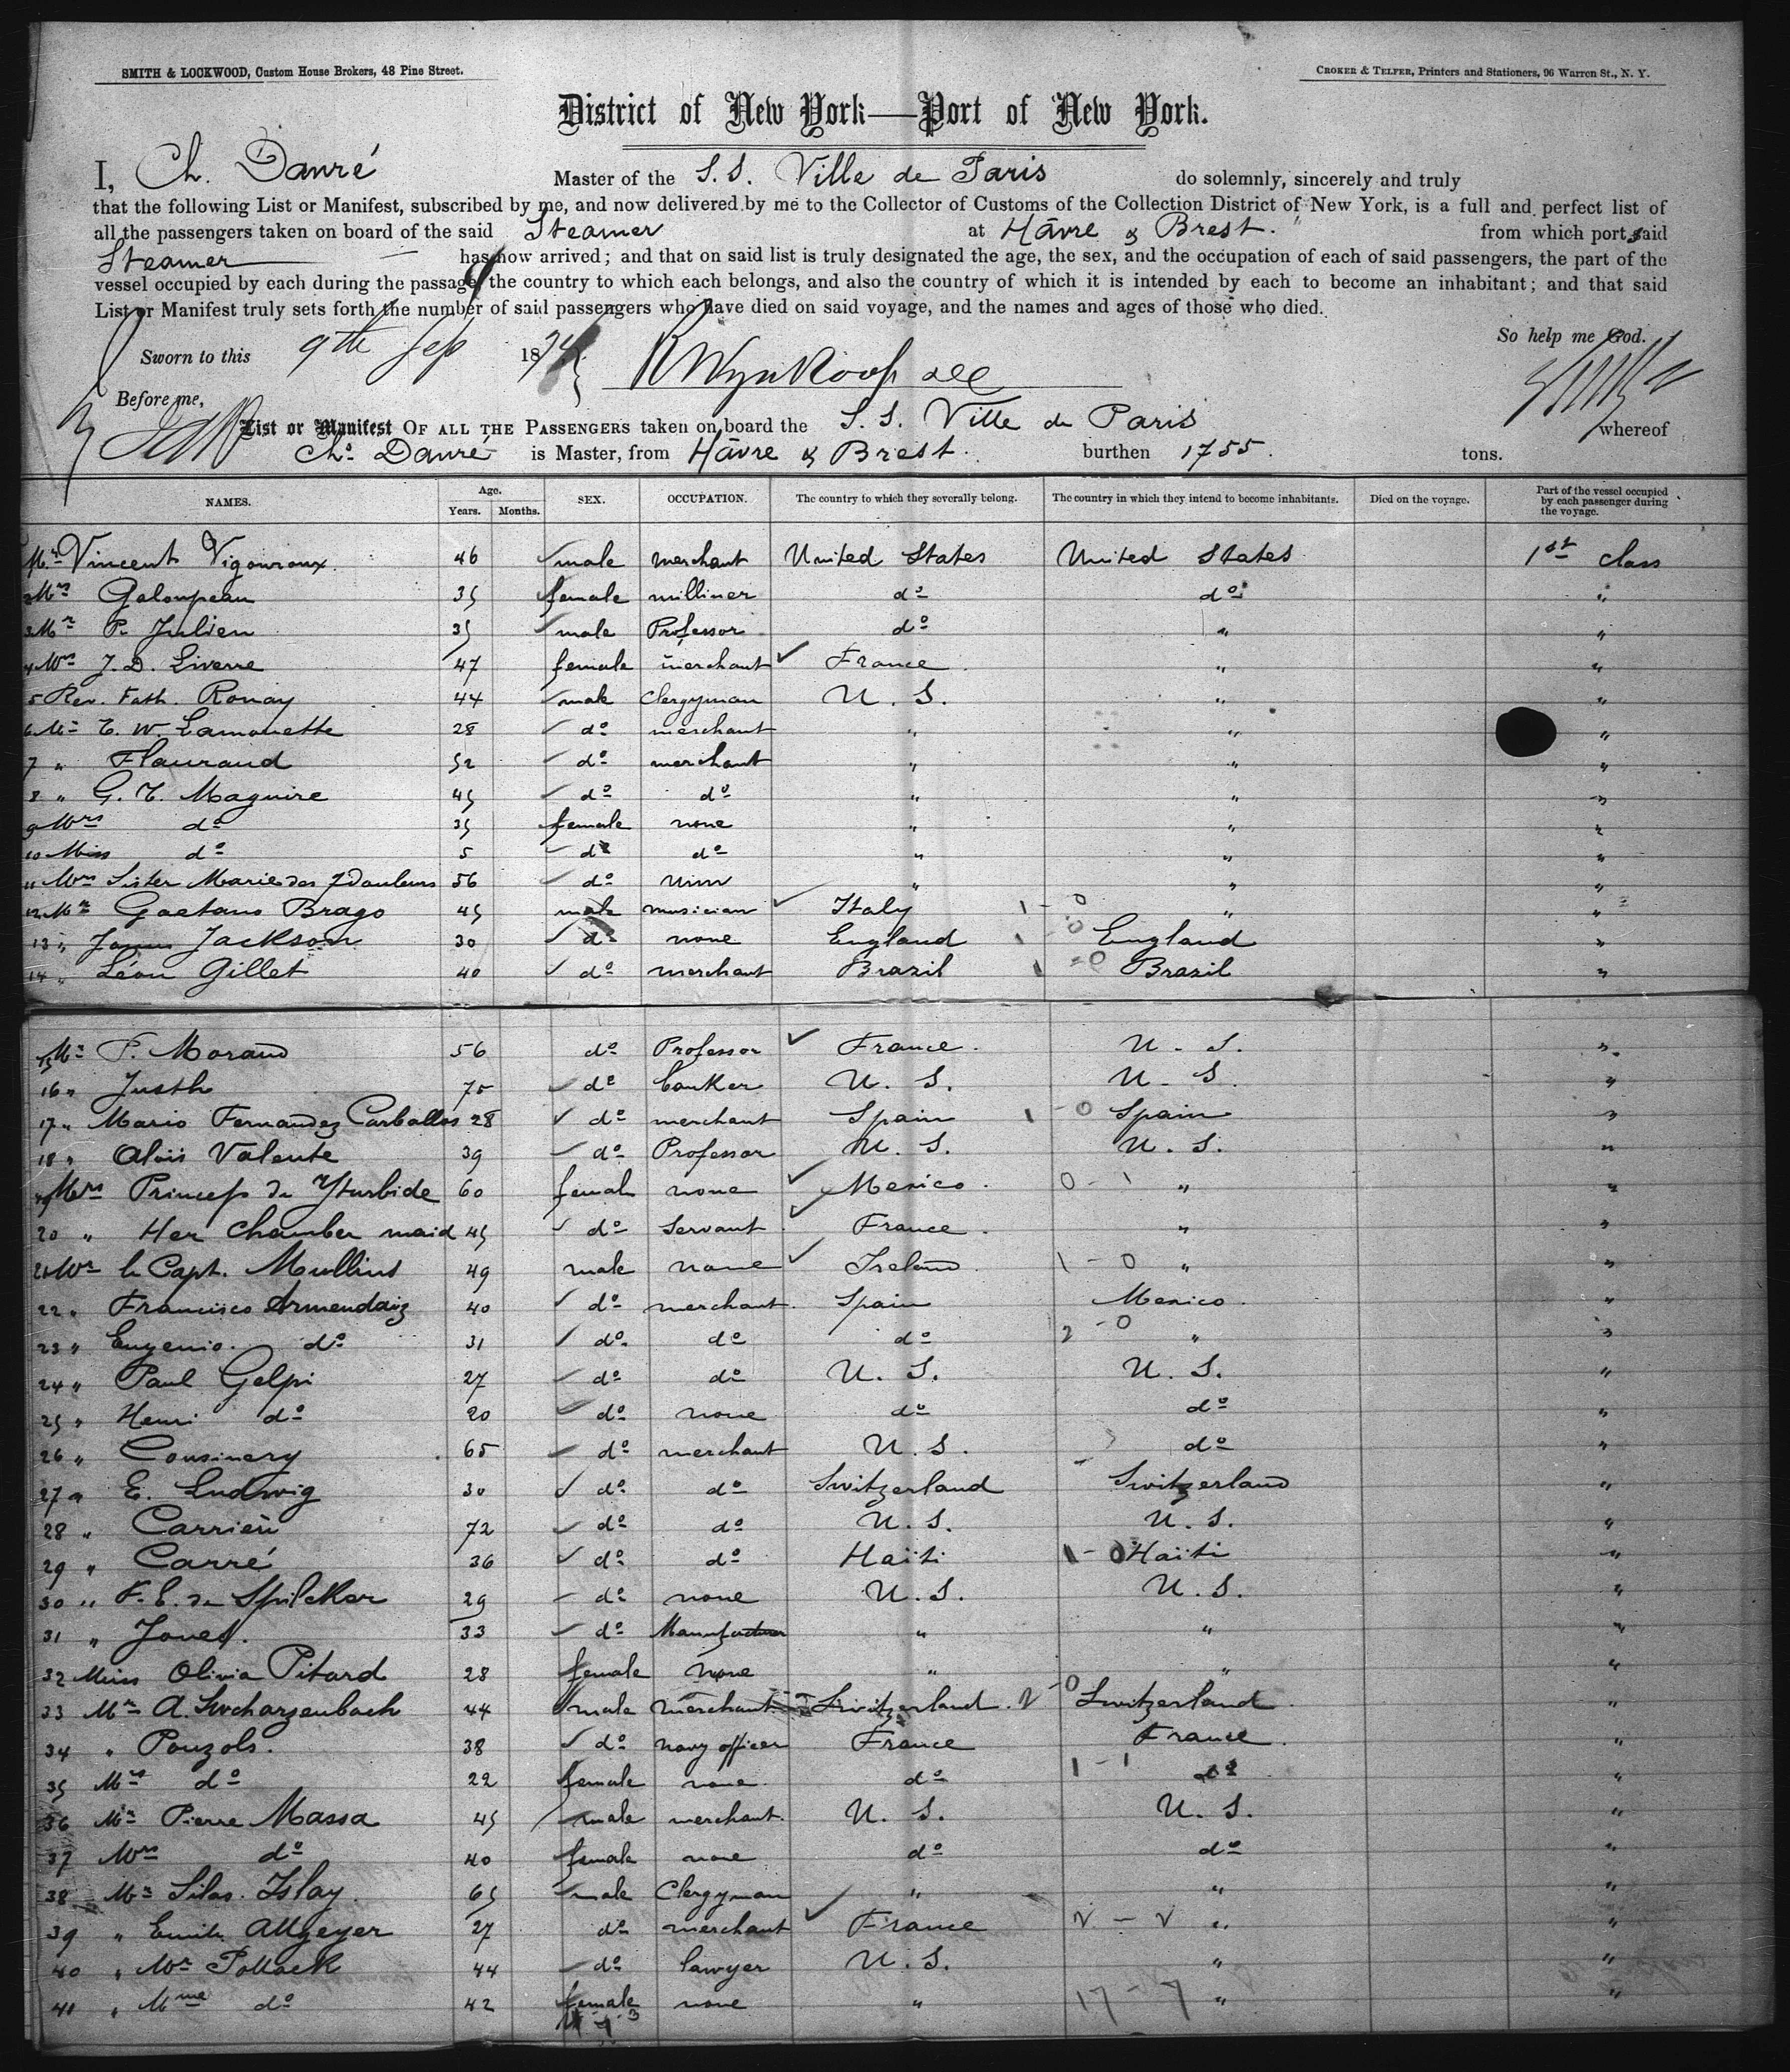 SMITH & LOCKWOOD, Custom House Brokers, 48 Pine Street. CROKER & TELFER, Printers and Stationers, 96 Warren St., N. Y.
District of New York—Port of New York.
I, Ch. Danré Master of the S.S. Ville de Paris do solemnly, sincerely and truly
that the following List or Manifest, subscribed by me, and now delivered by me to the Collector of Customs of the Collection District of New York, is a full and perfect list of
all the passengers taken on board of the said Steamer at Hâvre & Brest. from which port said
Steamer has now arrived; and that on said list is truly designated the age, the sex, and the occupation of each of said passengers, the part of the
vessel occupied by each during the passage, the country to which each belongs, and also the country of which it is intended by each to become an inhabitant; and that said
List or Manifest truly sets forth the number of said passengers who have died on said voyage, and the names and ages of those who died.
So help me God.
Sworn to this 9th Sep 1874
Before me,
List or Manifest OF ALL THE PASSENGERS taken on board the S.S. Ville de Paris whereof
Ch. Danré is Master, from Hâvre & Brest. burthen 1755. tons.
NAMES. Age. Years. Months. SEX. OCCUPATION. The country to which they severally belong. The country in which they intend to become inhabitants. Died on the voyage. Part of the vessel occupied by each passenger during the voyage.
Mr Vincent Vigouroux 46 male merchant United States United States 1st class
2 Mrs Galoupeau 35 female milliner do do "
3 Mr P. Julien 35 male Professor do " "
4 Mrs J. D. Liverre 47 female merchant France " "
5 Rev. Fath. Ronay 44 male Clergyman U. S. " "
6 Mr E. W. Lamouette 28 do merchant " " "
7 " Flauraud 52 do merchant " " "
8 " G. T. Maguire 45 do do " " "
9 Mrs do 35 female none " " "
10 Miss do 5 do do " " "
11 Mrs Sister Marie des 7 Douleurs 56 do " " "
12 Mr Gaetano Brago 45 male musician Italy 1 - 0 " "
13 " James Jackson 30 do none England 1 - 0 England "
14 " Léon Gillet 40 do merchant Brazil 1 - 0 Brazil "
15 Mr P. Morand 56 do Professor France U. S. "
16 " Justh 75 do banker U. S. U. S. "
17 " Mario Fernandez Carballos 28 do merchant Spain 1 - 0 Spain "
18 " Alois Valente 39 do Professor U. S. U. S. "
19 Mrs Princess de Yturbide 60 female none Mexico 0 - 1 " "
20 " Her Chamber maid 45 do Servant France " "
21 Mr le Capt. Mullins 49 male none Ireland 1 - 0 " "
22 " Francisco Armendaiz 40 do merchant Spain Mexico "
23 " Eugenio do 31 do do do 2 - 0 " "
24 " Paul Gelpi 27 do do U. S. U. S. "
25 " Henri do 20 do none do do "
26 " Cousinery 65 do merchant U. S. do "
27 " E. Ludwig 30 do do Switzerland Switzerland "
28 " Carrière 72 do do U. S. U. S. "
29 " Carré 36 do do Haïti 1 - 0 Haïti "
30 " F. E. de Spilcker 29 do none U. S. U. S. "
31 " Jones 33 do Manufacturer " " "
32 Miss Olivia Pitard 28 female none " " "
33 Mr A. Schwarzenbach 44 male merchant Switzerland 2 - 0 Switzerland "
34 " Pouzols. 38 do navy officer France France "
35 Mrs do 22 female none do 1 - 1 do "
36 Mr Pierre Massa 45 male merchant U. S. U. S. "
37 Mrs do 40 female none do do "
38 Mr Silas. Islay 65 male Clergyman " " "
39 " Emile Allgeyer 27 do merchant France 2 - 2 " "
40 " Mr Pollock 44 do lawyer U. S. " "
41 " Mme do 42 female none " 17 - 7 " "